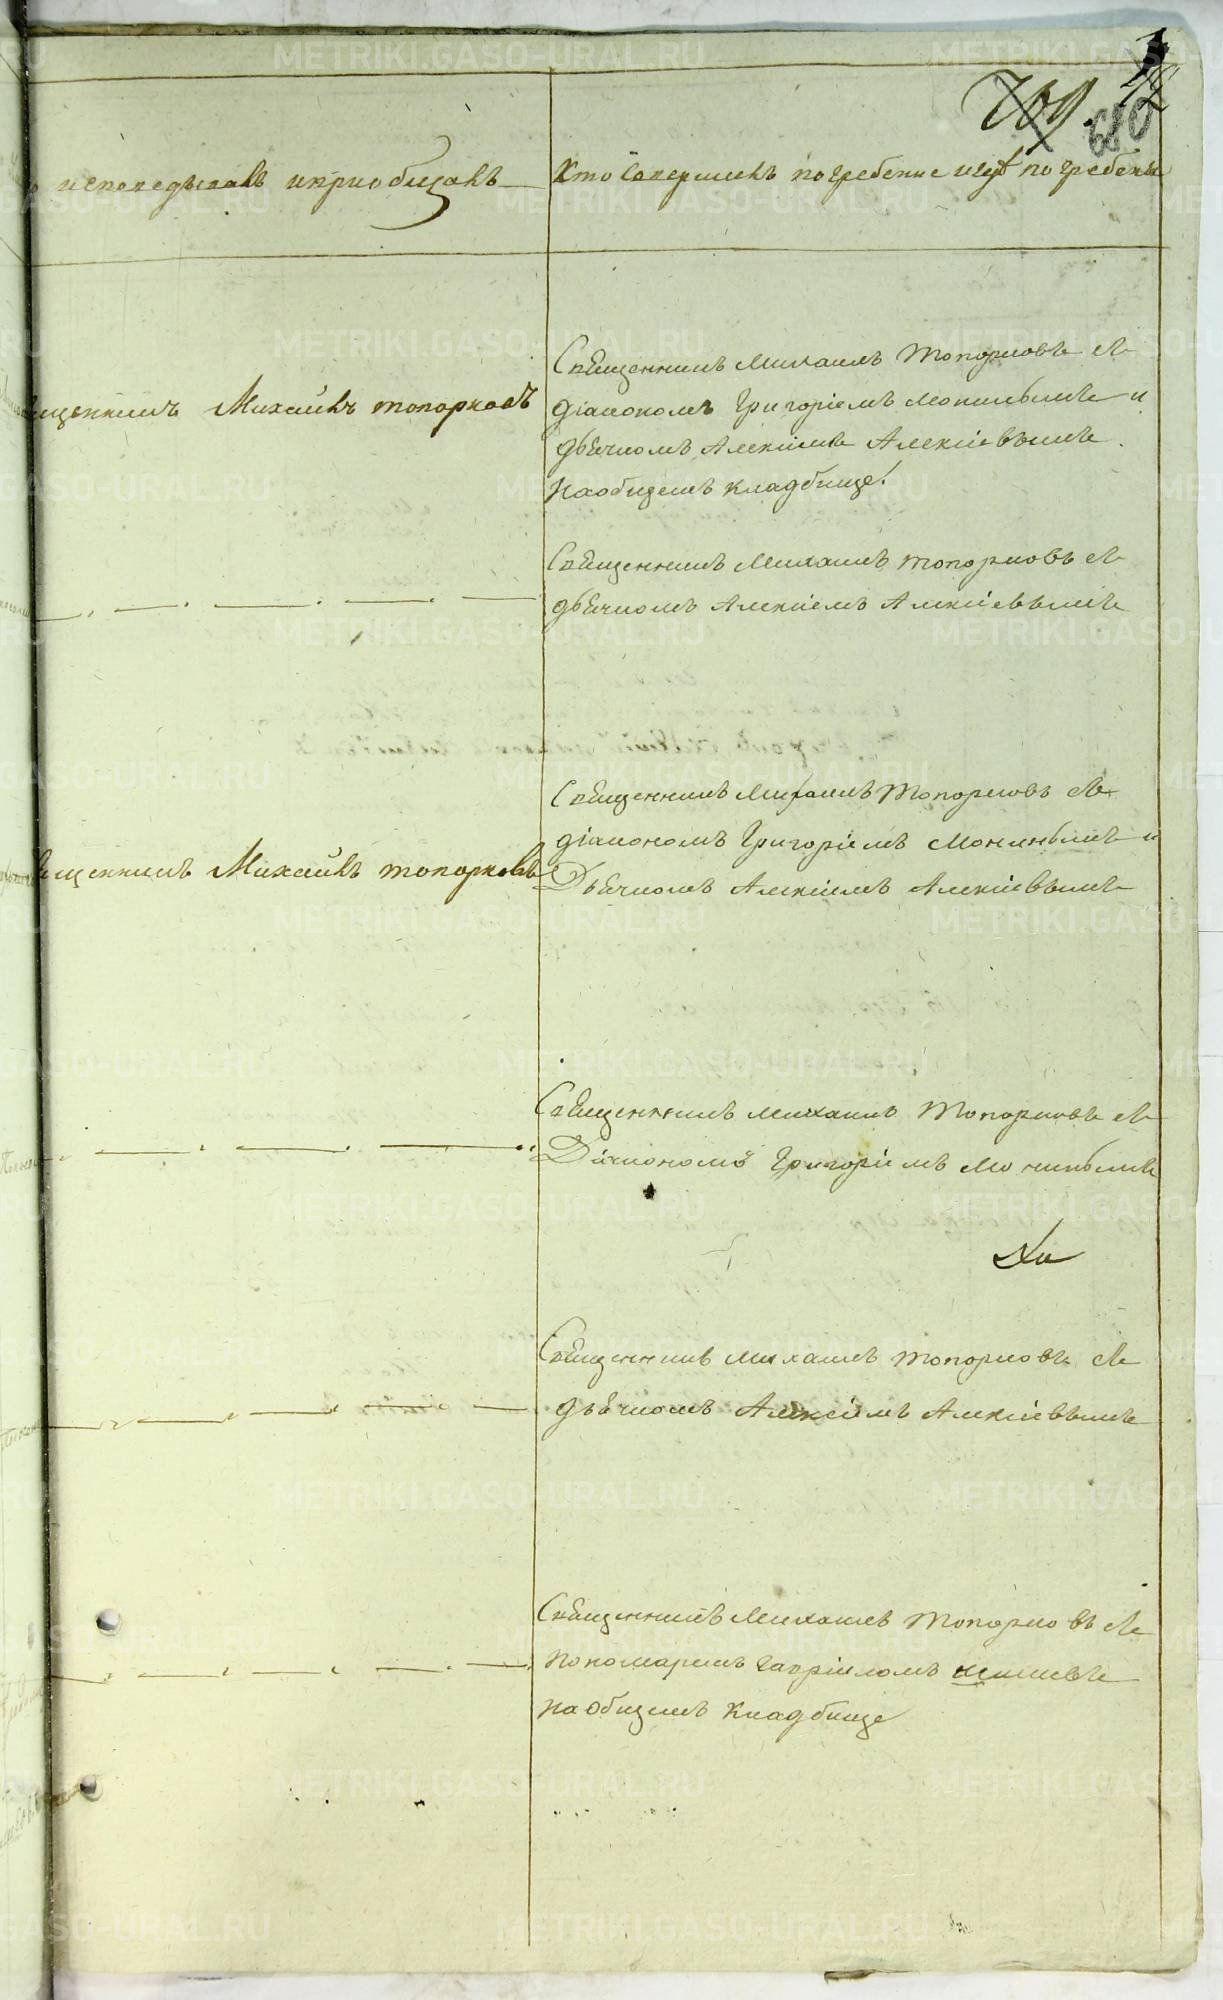 709.
680
исповедывалъ и приобщалъ
Кто совершилъ погребение и гдѣ погребены
Священникъ Михаилъ Топорковъ съ
щенникъ Михаилъ топорковъ
діакономъ Григоріемъ и
дьячкомъ Алексіемъ Алексіевымъ
На общемъ кладбище.
Священникъ Михаилъ топорковъ съ
дьячкомъ Алексіемъ Алексіевымъ
Священникъ Михаилъ Топорковъ съ
діакономъ Григоріемъ и
щенникъ Михаилъ топорковъ
Дьячкомъ Алексіемъ Алексіевымъ
Священникъ Михаилъ Топорковъ съ
Діакономъ Григоріемъ
Священникъ Михаилъ топорковъ съ
дьячкомъ Алексіемъ Алексіевымъ
Священникъ Михаилъ Топорковъ съ
пономаремъ Гавріиломъ
На общемъ Кладбище
METRIKI.GASO-URAL.RU